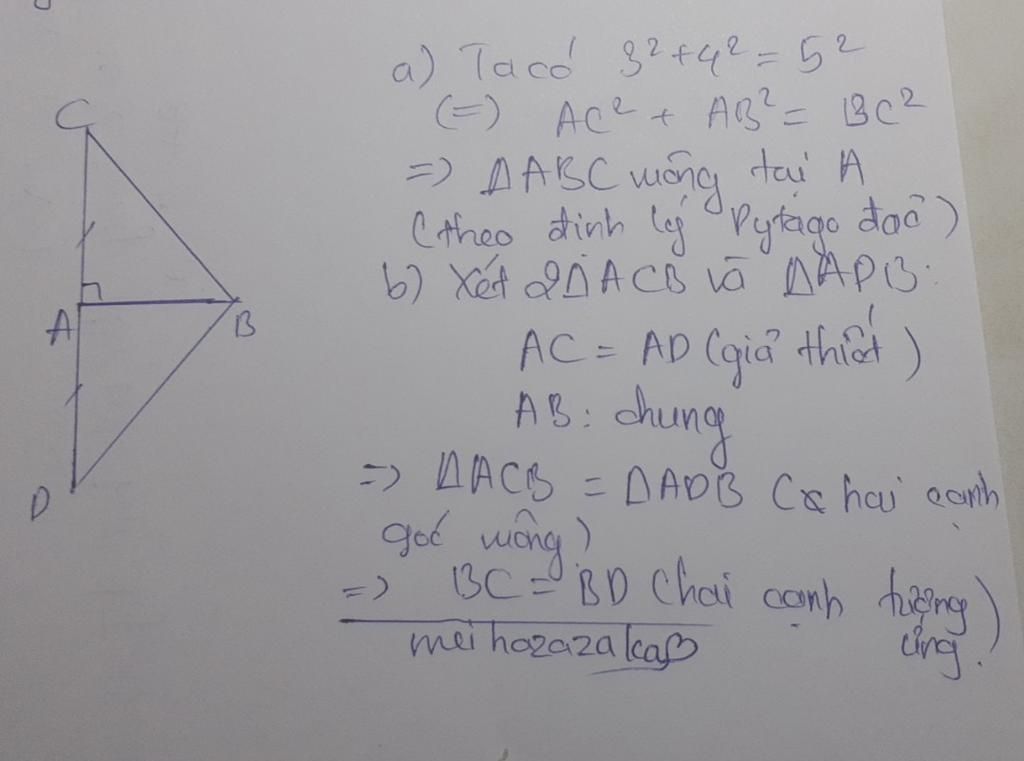 C
A
B
D
a) Ta có 3² + 4² = 5²
(=) AC² + AB² = BC²
=> ΔABC vuông tại A
(theo định lý Pytago đảo)
b) Xét 2 ΔACB và ΔADB:
AC = AD (giả thiết)
AB: chung
=> ΔACB = ΔADB ( hai cạnh
góc vuông)
=> BC = BD (hai cạnh tương
ứng.)